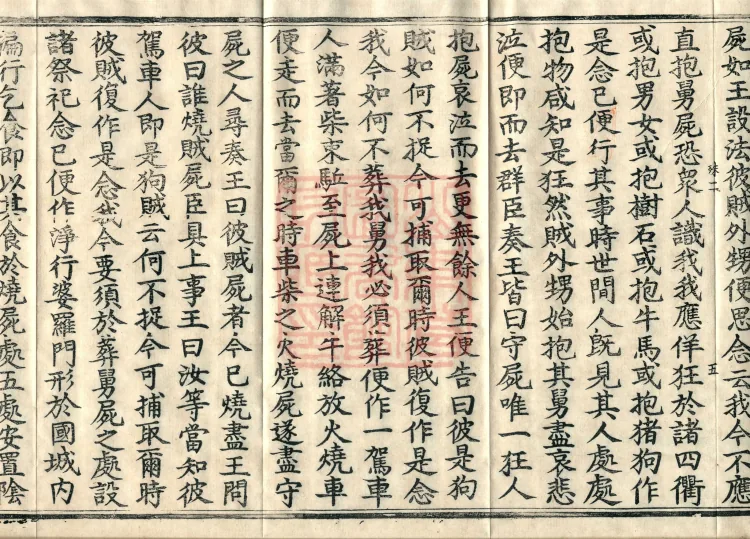 屍如王設法彼賊外甥便思念云我今不應
直抱舅屍恐衆人識我我應佯狂於諸四衢
或抱男女或抱樹石或抱牛馬或抱猪狗作
是念已便行其事時世間人旣見其人處處
抱物咸知是狂然賊外甥始抱其舅盡哀悲
泣便即而去群臣奏王皆曰守屍唯一狂人
抱屍哀泣而去更無餘人王便告曰彼是狗
賊如何不捉今可捕取爾時彼賊復作是念
我今如何不葬我舅我必須葬便作一駕車
人滿著柴束駈至屍上連解牛絡放火燒車
便走而去當爾之時車柴之火燒屍遂盡守
屍之人尋奏王曰彼賊屍者今已燒盡王問
彼曰誰燒賊屍臣具上事王曰汝等當知彼
駕車人即是狗賊云何不捉今可捕取爾時
彼賊復作是念我今要須於葬舅屍之處設
諸祭祀念已便作淨行婆羅門形於國城內
遍行乞食即以其食於燒屍處五處安置陰
五